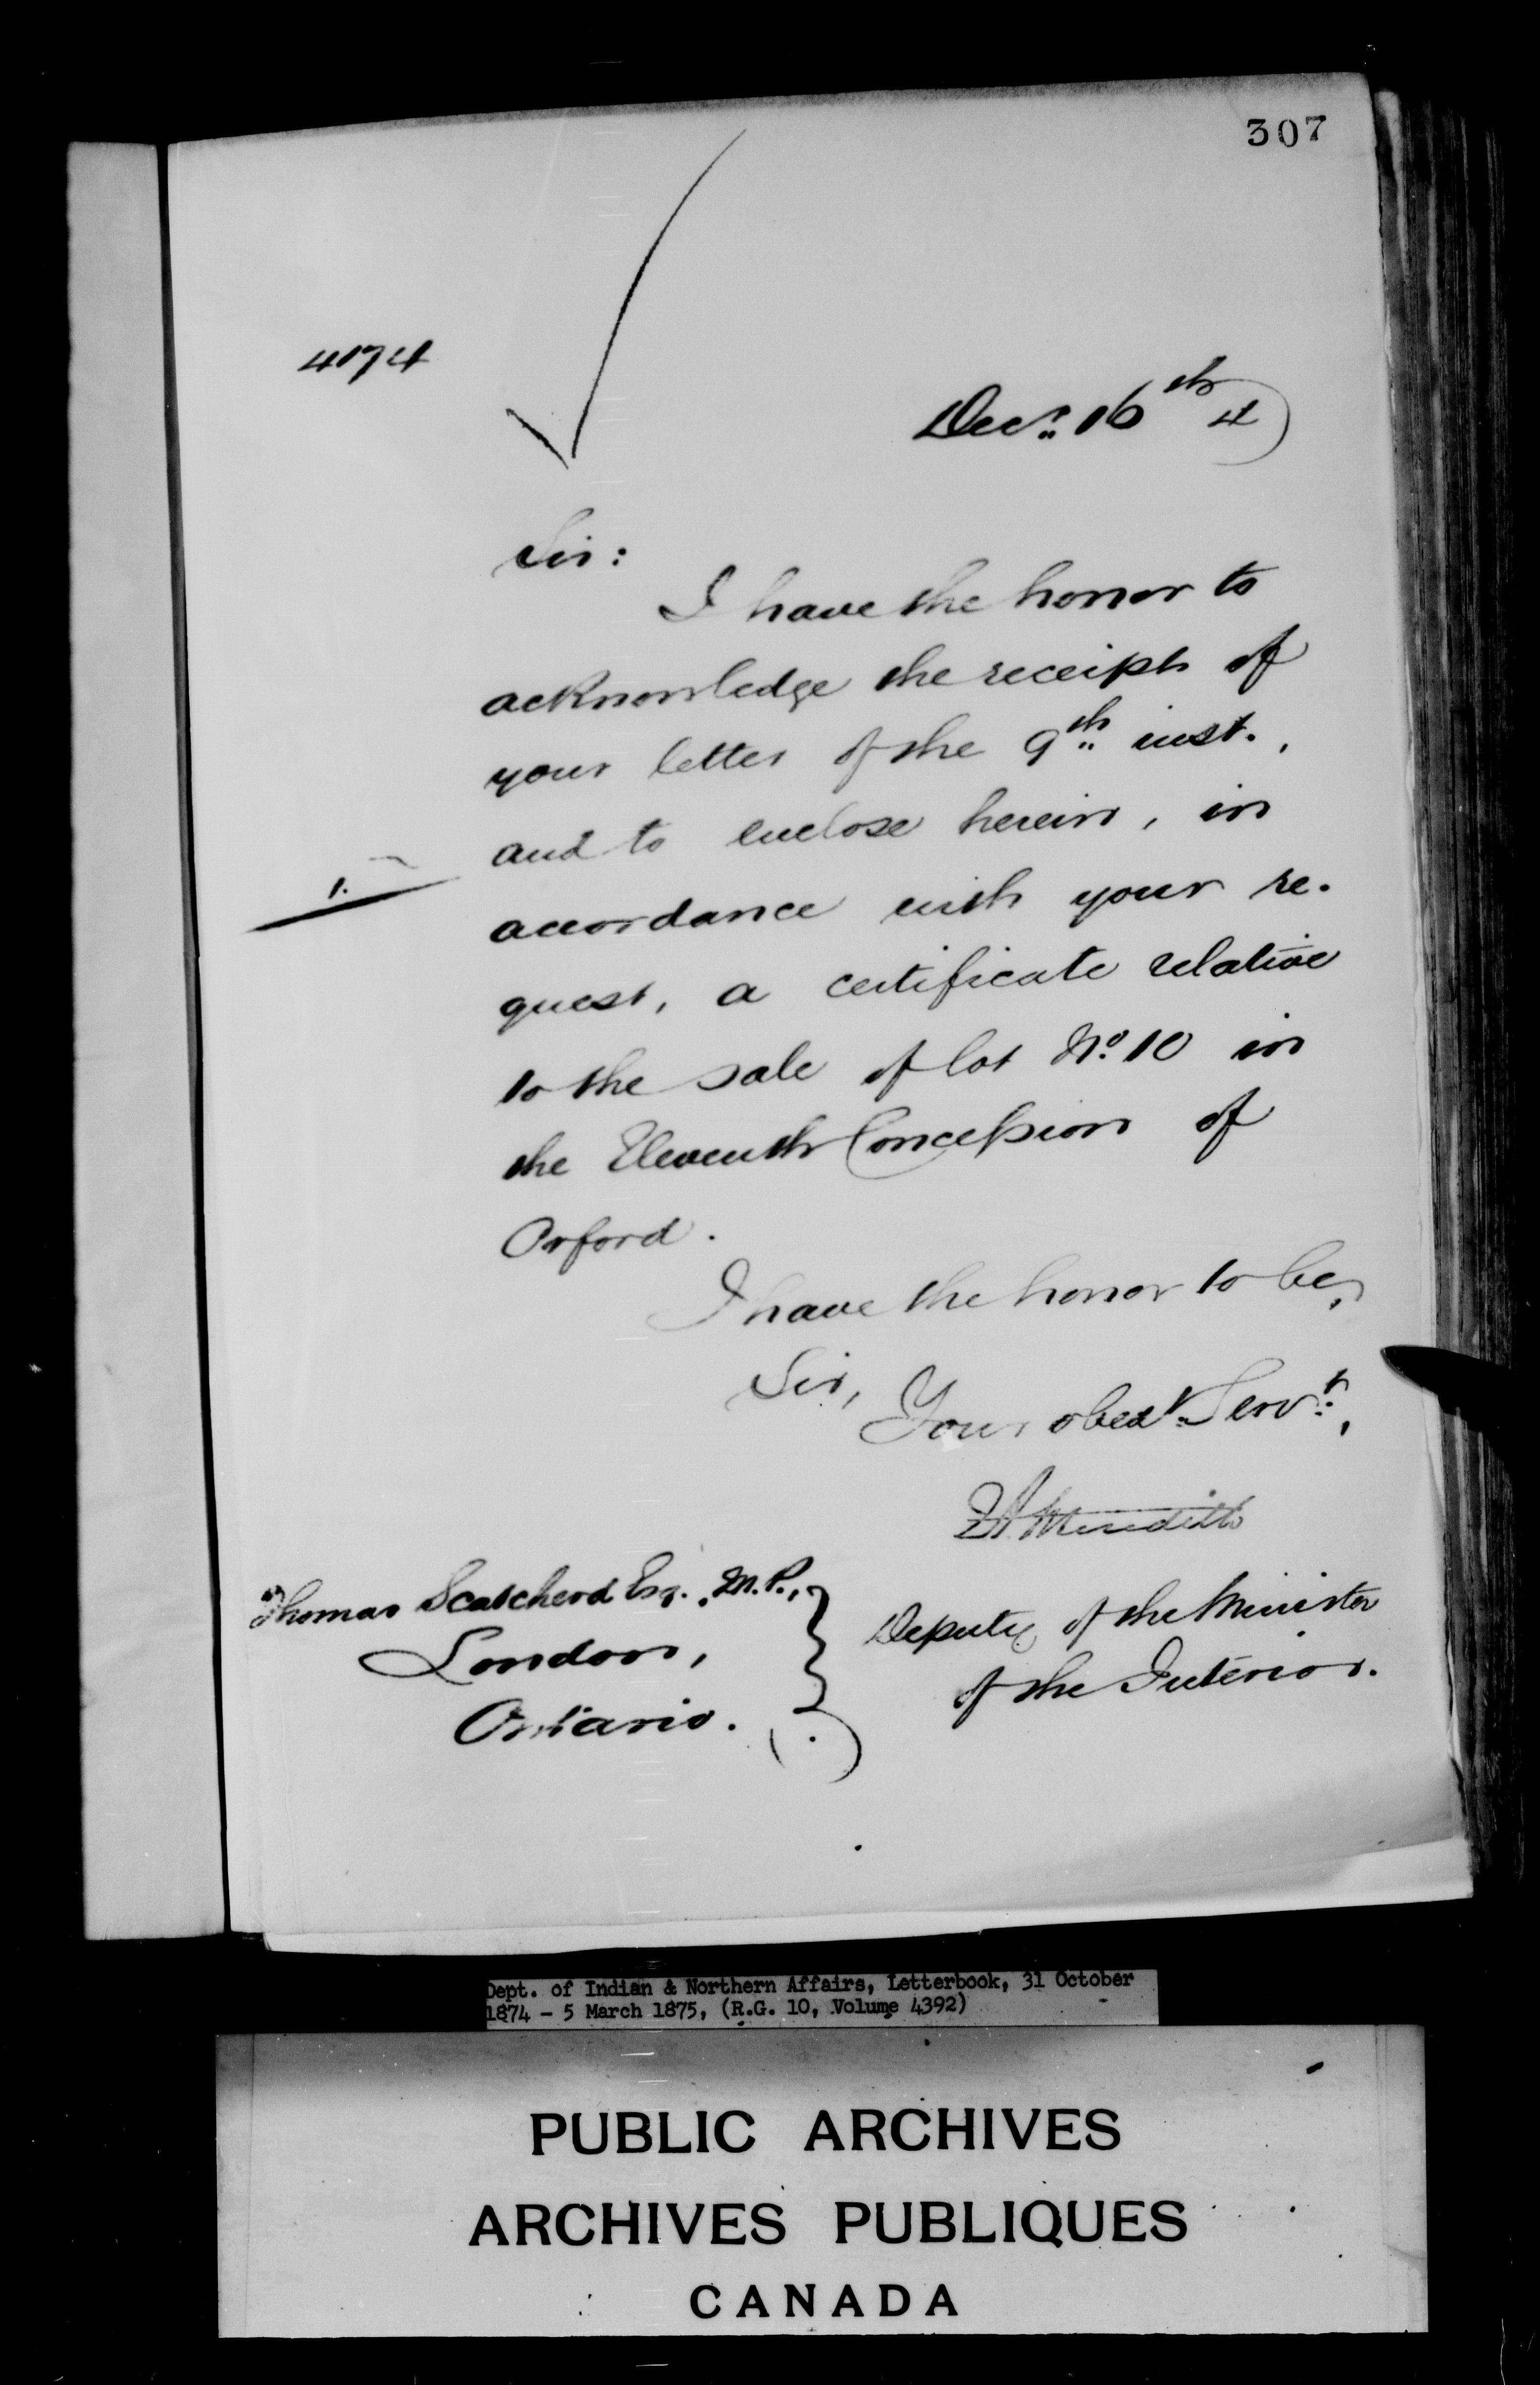 307
4174
Decr. 16th 4
Sir:
I have the honor to
acknowledge the receipt of
your letter of the 9th inst.,
and to enclose herein, in
1.
accordance with your re-
quest, a certificate relative
to the sale of lot No. 10 in
the Eleventh Concession of
Orford.
I have the honor to be,
Sir,
Your obedt. Servt.,
Meredith
Thomas Scatcherd Esq., M.P.,
London,
Ontario.
Deputy of the Minister
of the Interior.
Dept. of Indian & Northern Affairs, Letterbook, 31 October
1874 - 5 March 1875, (R.G. 10, Volume 4392)
PUBLIC ARCHIVES
ARCHIVES PUBLIQUES
CANADA